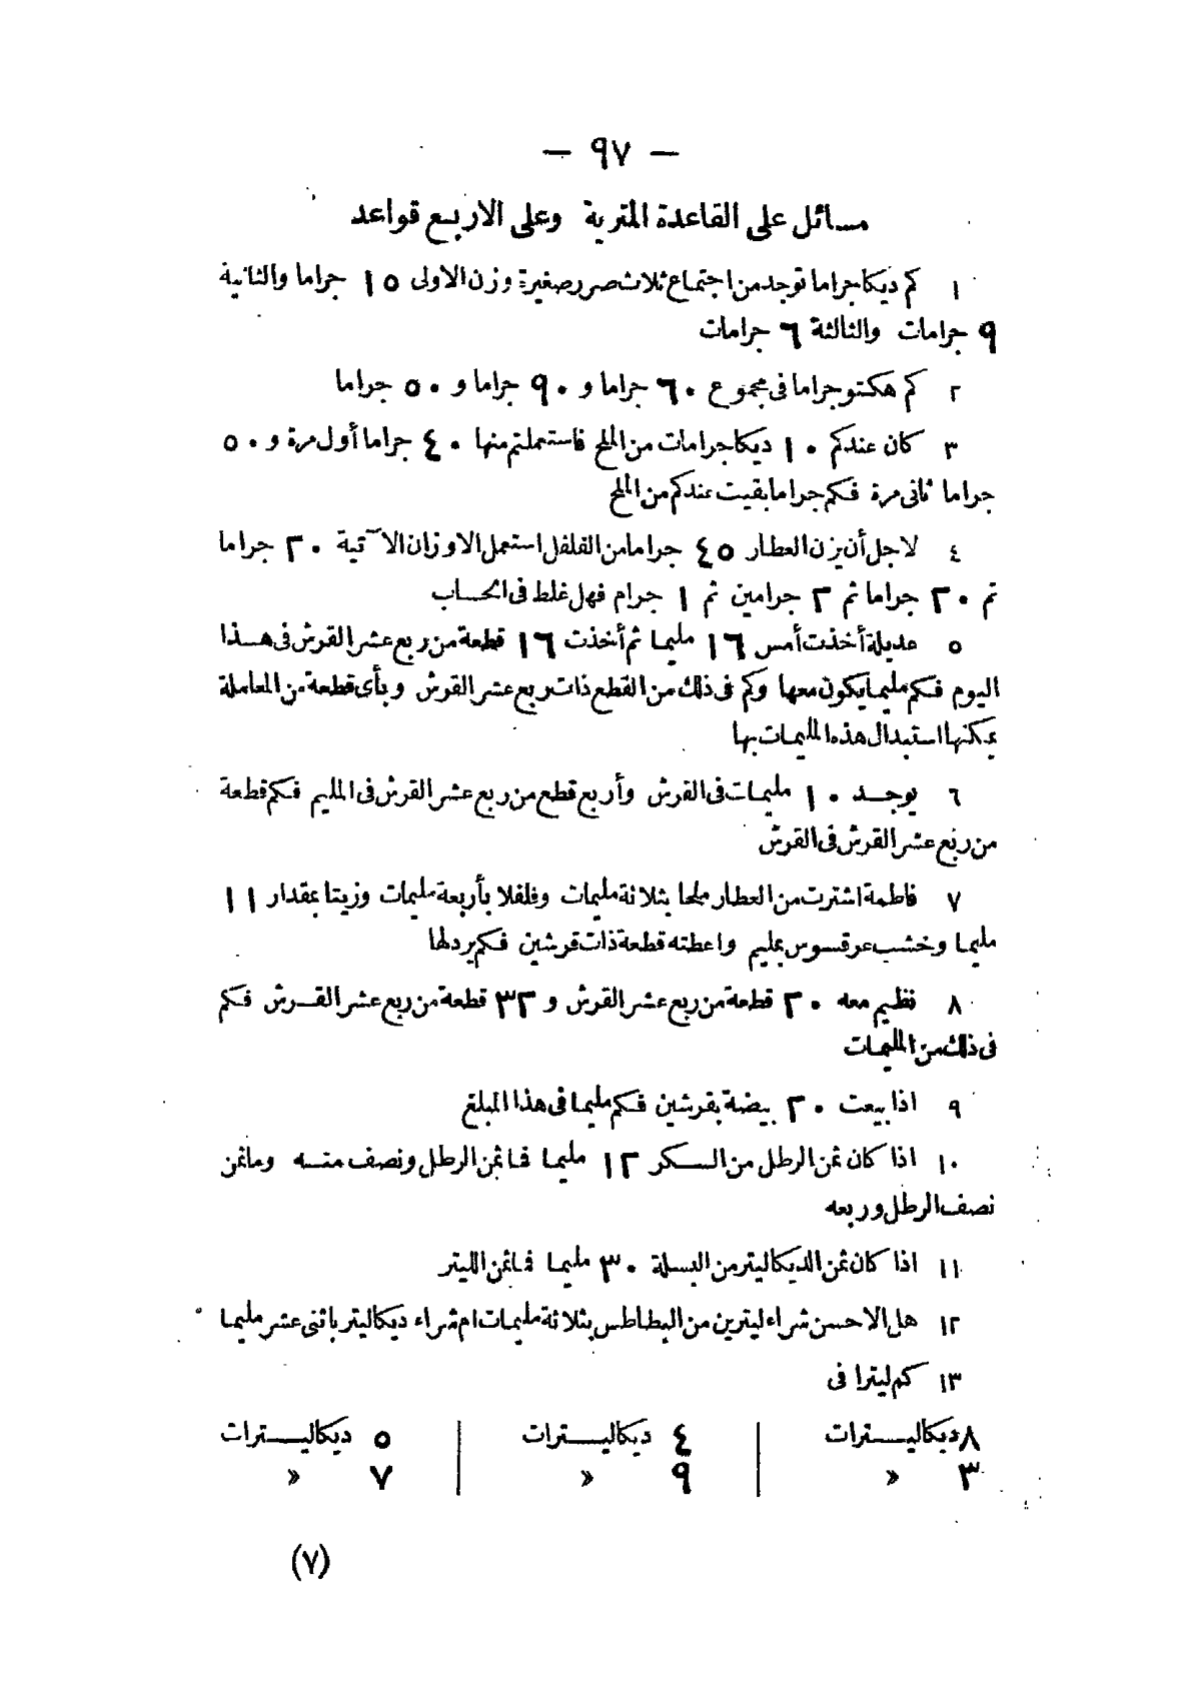 — ٩٧ —
مسائل على القاعدة المترية وعلى الاربع قواعد
١ كم ديكا جراما توجد من اجتماع ثلاث صرر صغيرة وزن الاولى ١٥ جراما والثانية
٩ جرامات والثالثة ٦ جرامات
٢ كم هكتو جراما فى مجموع ٦٠ جراما و ٩٠ جراما و ٥٠ جراما
٣ كان عندكم ١٠ ديكا جرامات من الملح فاستعملتم منها ٤٠ جراما أول مرة و ٥٠
جراما ثانى مرة فكم جراما بقيت عندكم من الملح
٤ لاجل أن يزن العطار ٤٥ جراما من الفلفل استعمل الاوزان الآتية ٢٠ جراما
ثم ٢٠ جراما ثم ٢ جرامين ثم ١ جرام فهل غلط فى الحساب
٥ عديلة أخذت أمس ١٦ مليما ثم أخذت ١٦ قطعة من ربع عشر القرش فى هذا
اليوم فكم مليما يكون معها وكم فى ذلك من القطع ذات ربع عشر القرش وبأى قطعة من المعاملة
يمكنها استبدال هذه المليمات بها
٦ يوجد ١٠ مليمات فى القرش وأربع قطع من ربع عشر القرش فى المليم فكم قطعة
من ربع عشر القرش فى القرش
٧ فاطمة اشترت من العطار ملحا بثلاثة مليمات وفلفلا بأربعة مليمات وزيتا بمقدار ١١
مليما وخشب عرقسوس بمليم واعطته قطعة ذات قرشين فكم يرد لها
٨ نظيم معه ٢٠ قطعة من ربع عشر القرش و ٣٢ قطعة من ربع عشر القرش فكم
فى ذلك من المليمات
٩ اذا بيعت ٢٠ بيضة بقرشين فكم مليما فى هذا المبلغ
١٠ اذا كان ثمن الرطل من السكر ١٢ مليما فما ثمن الرطل ونصف منه وما ثمن
نصف الرطل وربعه
١١ اذا كان ثمن الديكاليتر من البسلة ٣٠ مليما فما ثمن الليتر
١٢ هل الاحسن شراء ليترين من البطاطس بثلاثة مليمات ام شراء ديكاليتر باثنى عشر مليما
١٣ كم ليترا فى
٨ ديكاليترات | ٤ ديكاليترات | ٥ ديكاليترات
٣ » | ٩ » | ٧ »
(٧)